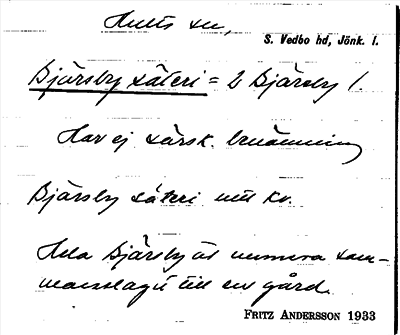 Hults sn,
S. Vedbo hd, Jönk. l.
Bjärsby säteri = 2 Bjärsby 1.
Har ej särsk. benämning
Bjärsby säteri utit kv.
Hela Bjärsby är numera sam-
manslaget till en gård.
FRITZ ANDERSSON 1933